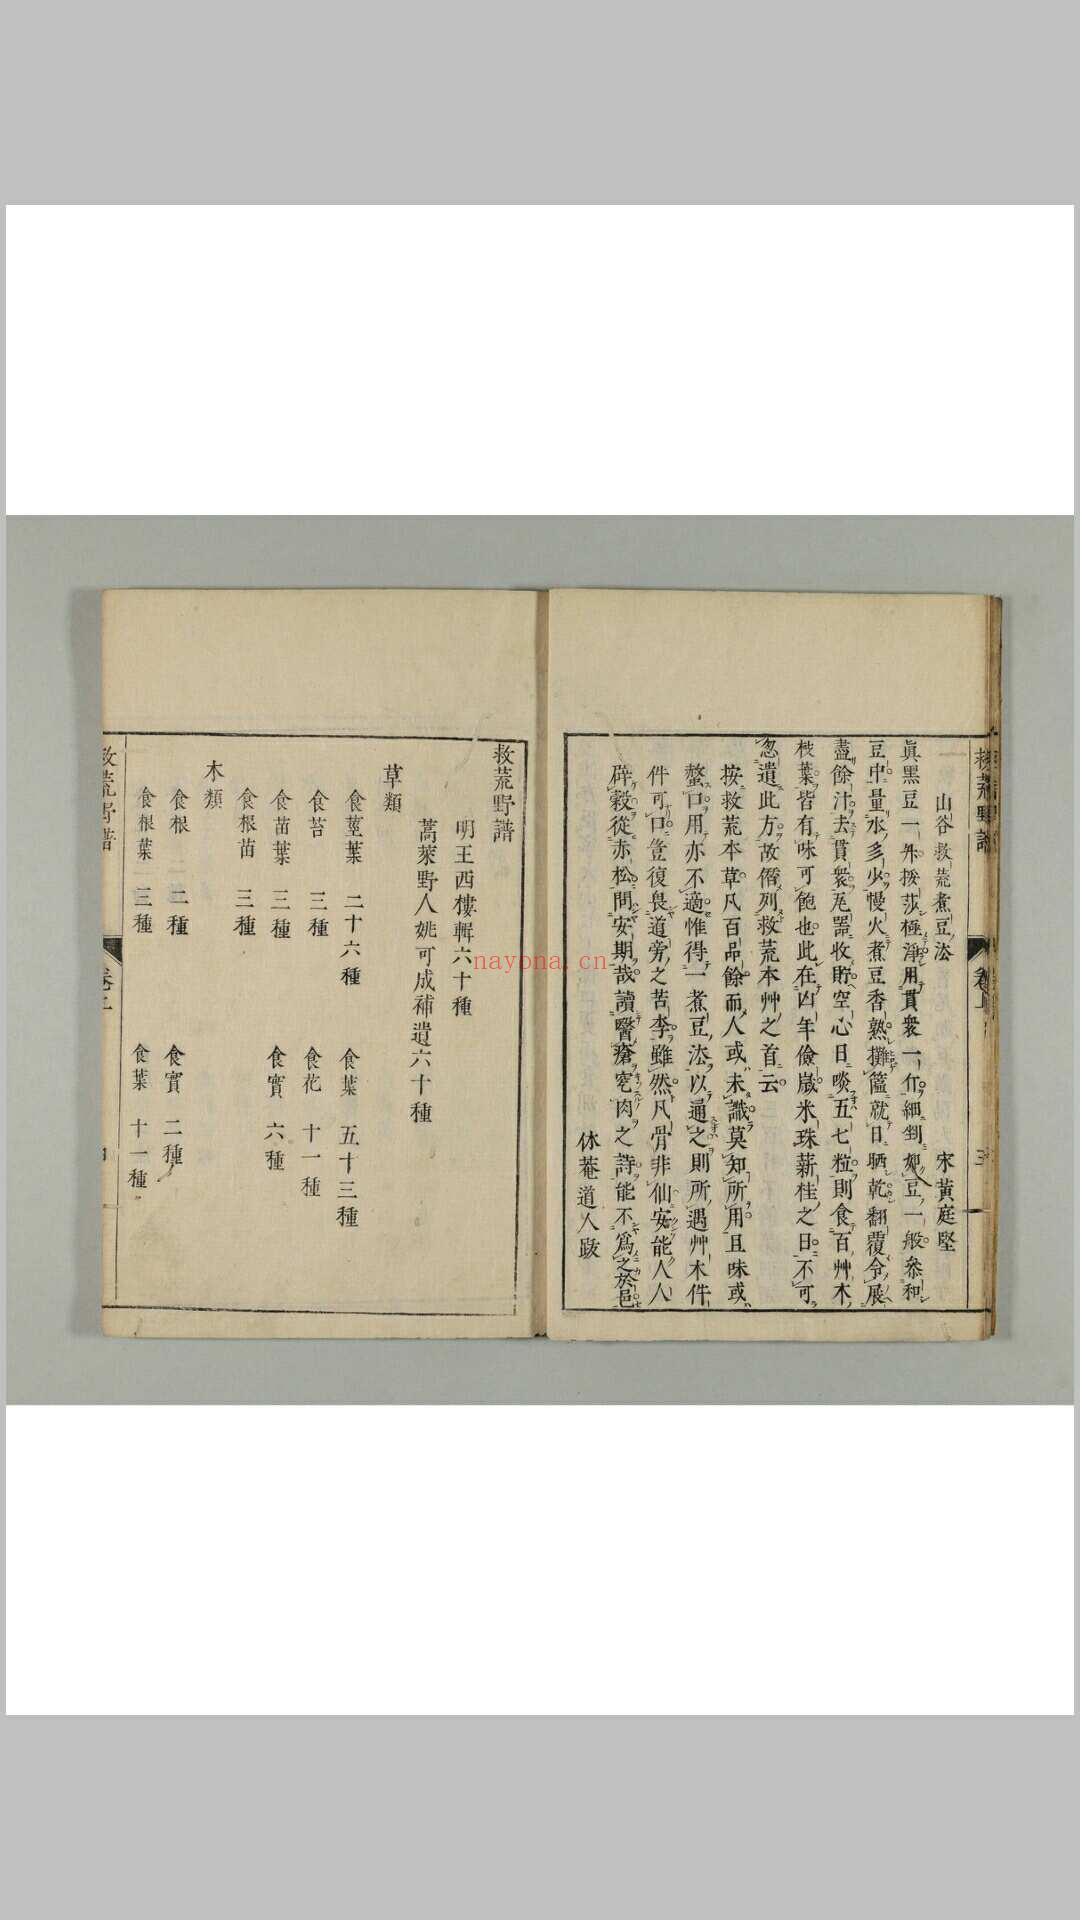 山谷救荒煮豆法 宋黃庭堅
眞黑豆一升挼莎極淨用貫衆一斤細剉如豆一般叅和
豆中量水多少慢火煮豆香熟攤簠就日晒乾翻覆令展
盡餘汁去貫衆瓦噐收貯空心日啖五七粒則食百艸木
枝葉皆有味可飽也此在凶年儉嵗米珠薪桂之日不可
忽遺此方故僭列救荒本艸之首云
按救荒本草凡百品餘而人或未識莫知所用且味或
螫口用亦不適惟得一煮豆法以通之則所遇艸木件
件可口豈復畏道旁之苦李雖然凡骨非仙安能人人
辟穀從赤松問安期哉讀醫瘡
肉之詩能不爲之於邑
休菴道人跋
救荒野譜
明王西樓輯六十種
蒿萊野人姚可成補遺六十種
草類
食莖葉 二十六種 食葉 五十三種
食苔 三種 食花 十一種
食苗葉 三種 食實 六種
食根苗 三種
木類
食根 二種 食實 二種
食根葉 三種 食葉 十一種
救荒野譜
卷上
nayona.cn